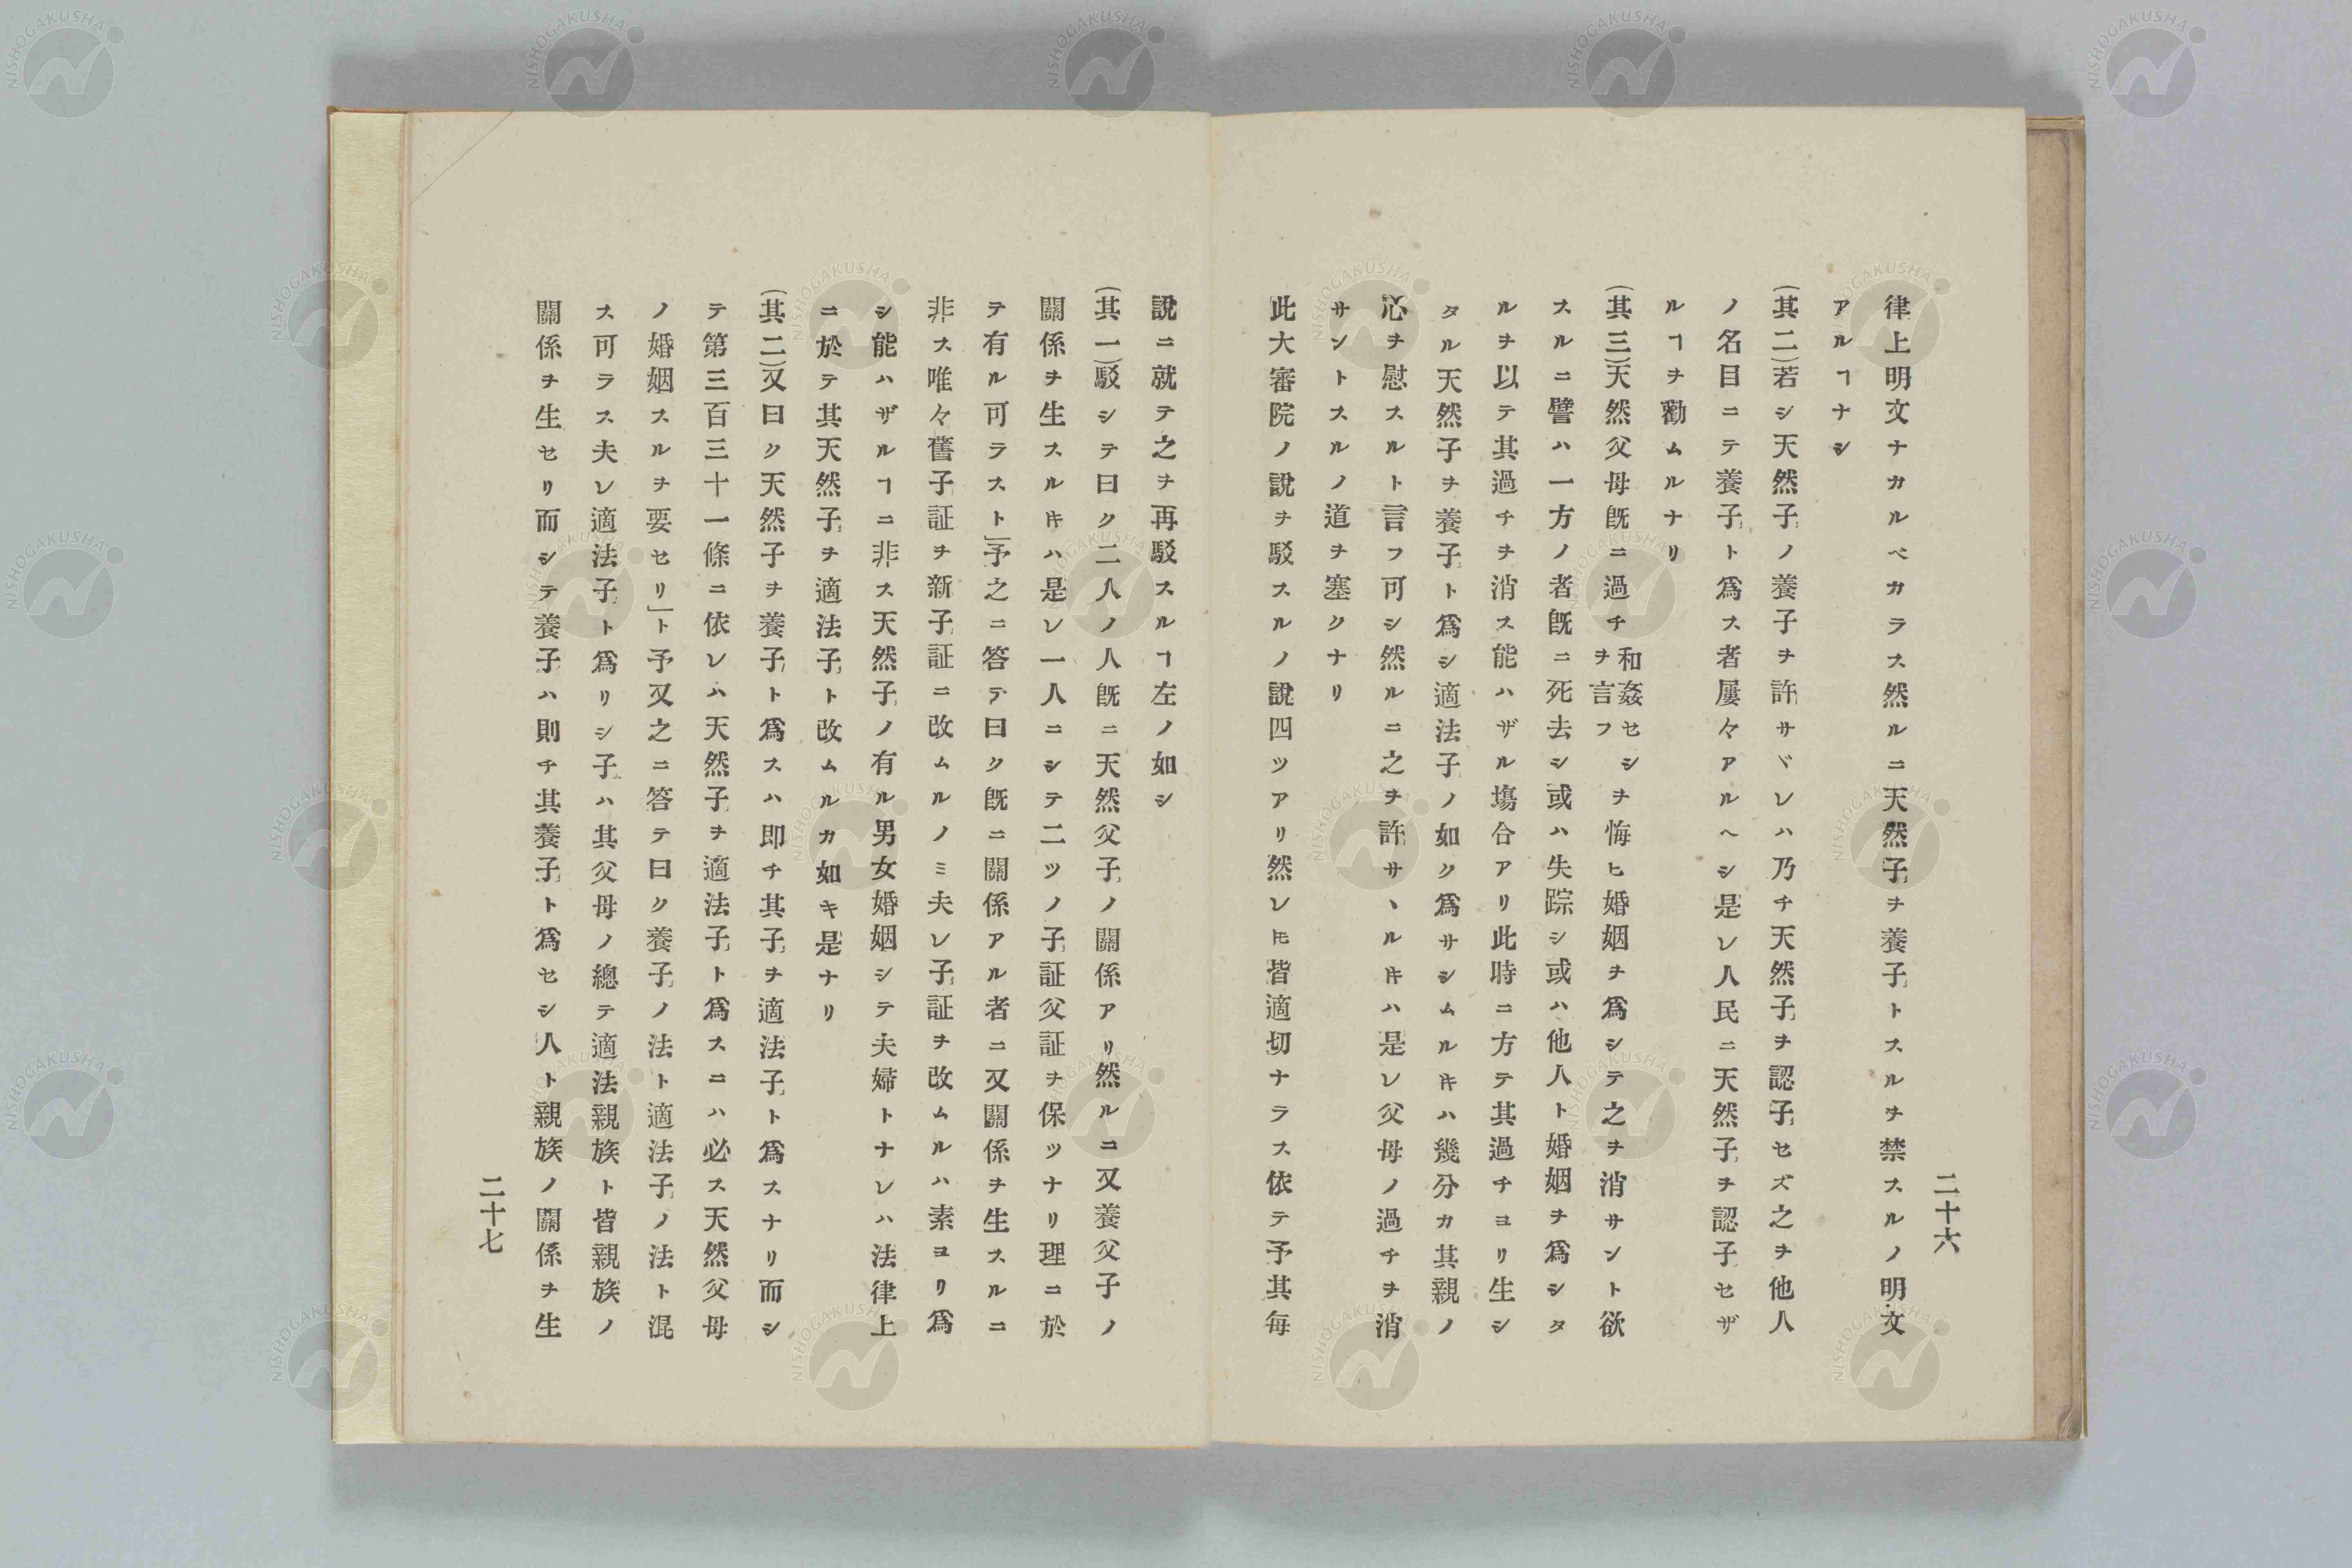 二十六
律上明文ナカルベカラス然ルニ天然子ヲ養子トスルヲ禁スルノ明文
アルヿナシ
(其二)若シ天然子ノ養子ヲ許サヾレハ乃チ天然子ヲ認子セズ之ヲ他人
ノ名目ニテ養子ト爲ス者屢々アルヘシ是レ人民ニ天然子ヲ認子セザ
ルヿヲ勸ムルナリ
(其三)天然父母旣ニ過チ和姦セシヲ言フヲ悔ヒ婚姻ヲ爲シテ之ヲ消サント欲
スルニ譬ハ一方ノ者旣ニ死去シ或ハ失踪シ或ハ他人ト婚姻ヲ爲シタ
ルヲ以テ其過チヲ消ス能ハザル塲合アリ此時ニ方テ其過チヨリ生シ
タル天然子ヲ養子ト爲シ適法子ノ如ク爲サシムルキハ幾分カ其親ノ
心ヲ慰スルト言フ可シ然ルニ之ヲ許サヽルキハ是レ父母ノ過チヲ消
サントスルノ道ヲ塞クナリ
此大審院ノ說ヲ駁スルノ說四ツアリ然レ𪜈皆適切ナラス依テ予其每
說ニ就テ之ヲ再駁スルヿ左ノ如シ
(其一)駁シテ曰ク二人ノ人旣ニ天然父子ノ關係アリ然ルニ又養父子ノ
關係ヲ生スルキハ是レ一人ニシテ二ツノ子証父証ヲ保ツナリ理ニ於
テ有ル可ラスト」予之ニ答テ曰ク旣ニ關係アル者ニ又關係ヲ生スルニ
非ス唯々舊子証ヲ新子証ニ改ムルノミ夫レ子証ヲ改ムルハ素ヨリ爲
シ能ハザルヿニ非ス天然子ノ有ル男女婚姻シテ夫婦トナレハ法律上
ニ於テ其天然子ヲ適法子ト改ムルカ如キ是ナリ
(其二)又曰ク天然子ヲ養子ト爲スハ即チ其子ヲ適法子ト爲スナリ而シ
テ第三百三十一條ニ依レハ天然子ヲ適法子ト爲スニハ必ス天然父母
ノ婚姻スルヲ要セリ」ト予又之ニ答テ曰ク養子ノ法ト適法子ノ法ト混
ス可ラス夫レ適法子ト爲リシ子ハ其父母ノ總テ適法親族ト皆親族ノ
關係ヲ生セリ而シテ養子ハ則チ其養子ト爲セシ人ト親族ノ關係ヲ生
二十七